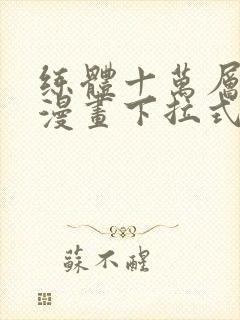 练體十萬層
漫畫下拉式
蘇不醒